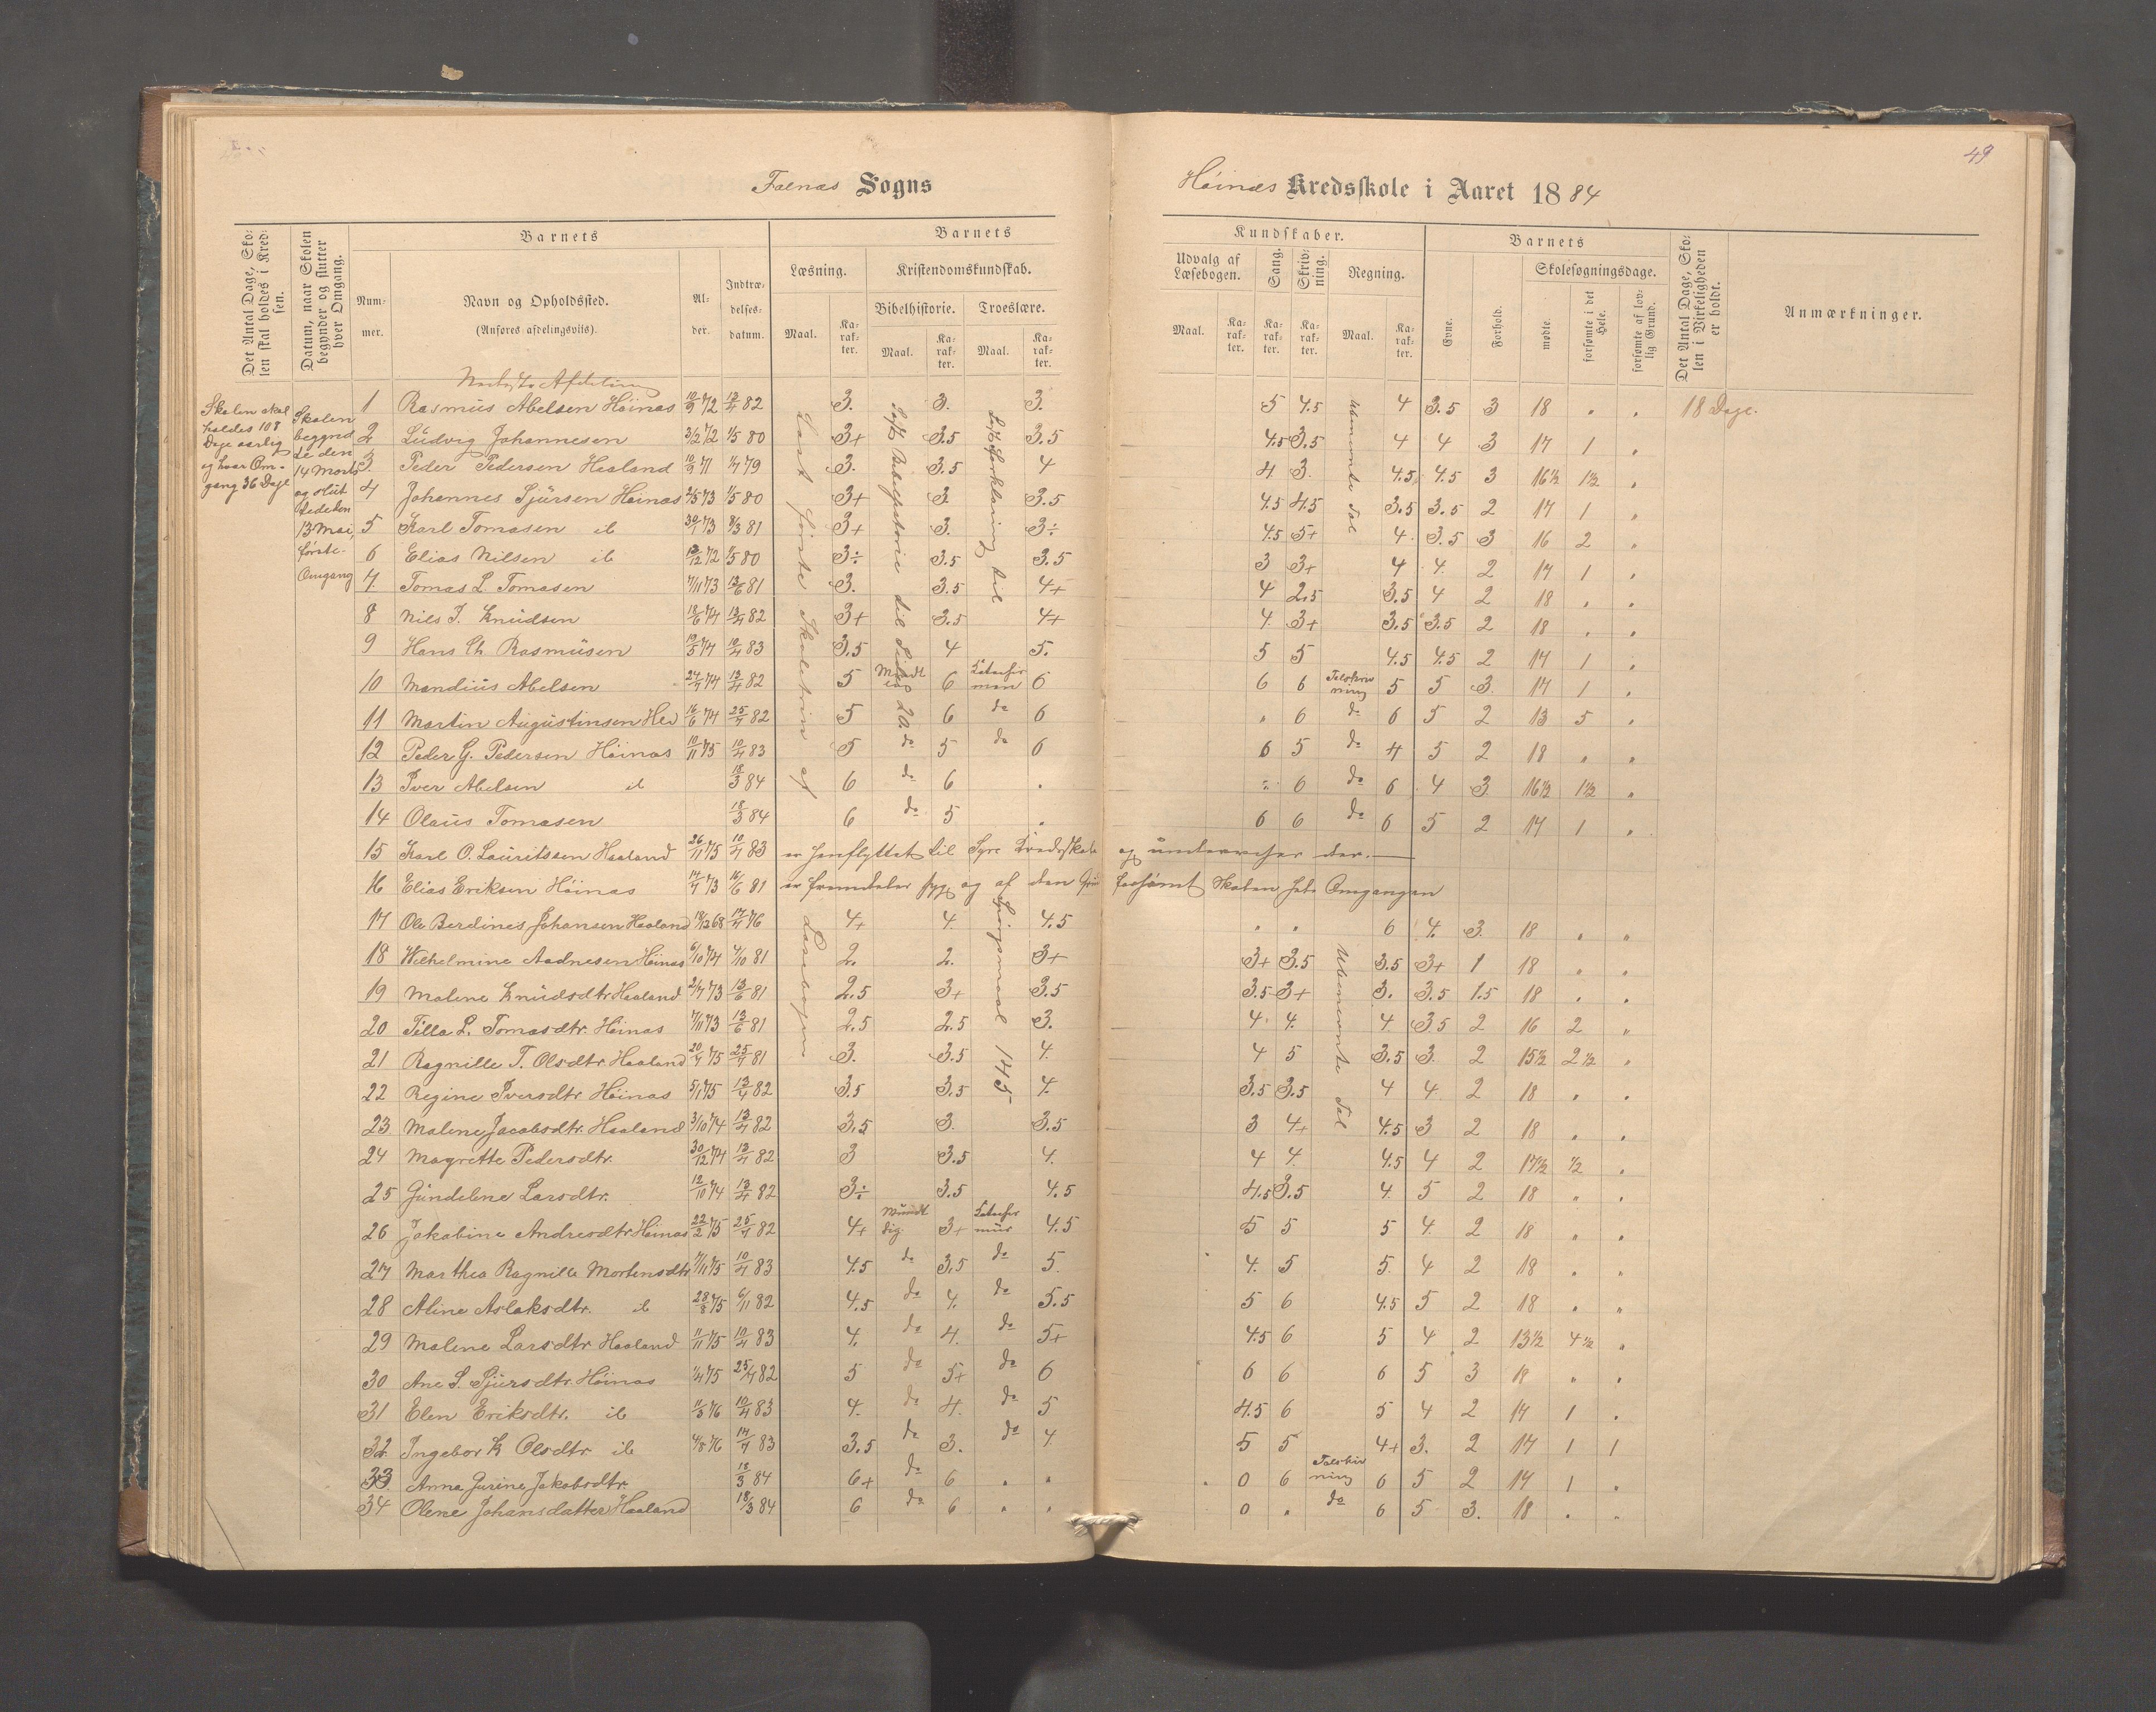 49
Falnæs Sogns
Høinæs Kredsskole i Aaret 1884
Det Antal Dage, Skolen skal holdes i Kredsen.
Datum, naar Skolen begynder og slutter hver Omgang.
Barnets
Nummer.
Navn og Opholdssted.
(Anføres afdelingsviis).
Alder.
Indtrædelsesdatum.
Barnets
Læsning.
Maal.
Karakter.
Kristendomskundskab.
Bibelhistorie.
Maal.
Karakter.
Troeslære.
Maal.
Karakter.
Kundskaber.
Udvalg af Læsebogen.
Maal.
Karakter.
Sang.
Karakter.
Skrivning.
Karakter.
Regning.
Maal.
Karakter.
Barnets
Evne.
Forhold.
Skolesøgningsdage.
mødte.
forsømte i det Hele.
forsømte af lovlig Grund.
Det Antal Dage, Skolen i Virkeligheden er holdt.
Anmærkninger.
Skolen skal
holdes 108
Dage aarlig
og hver Om-
gang 36 Dage
Skolen
begynd
te den
14 Marts
og slut
tede den
13 Mai,
første
Omgang
Nederste Afdeling
1 Rasmus Abelsen Høinas 10/9 72 13/4 82 3. 3. 3. 5 4.5 4 3.5 3 18 " " 18 Dage.
2 Ludvig Johannesen 3/2 72 1/5 80 3+ 3.5 3.5 4.5 3.5 4 4 3 17 1 "
3 Peder Pedersen Haaland 10/9 71 1/7 79 3. 3.5 4 4 3. 4.5 4.5 3 16½ 1½ "
4 Johannes Sjursen Høinas 2/5 73 1/5 80 3+ 3 3.5 4.5 4.5 3.5 3.5 2 17 1 "
5 Karl Tomasen ib 30/1 73 8/3 81 3+ 3. 3÷ 4.5 5+ 4 3.5 3 16 2 "
6 Elias Nilsen ib 13/12 72 1/5 80 3÷ 3.5 3.5 3 3+ 4 4. 2 17 1 "
7. Tomas L. Tomasen 7/11 73 13/6 81 3. 3.5 4+ 4 2.5 3.5 4 2 18 " "
8 Nils T. Knudsen 18/6 74 13/4 82 3+ 3.5 4+ 4. 3+ 3.5 3.5 2 18 " "
9 Hans Ch Rasmusen 19/5 74 10/4 83 3.5 4 5. 5 5 4.5 4.5 2 17 1 "
10 Mandius Abelsen 24/7 74 13/4 82 5 Mundtlig 6 Katechismen 6 6 6 Talskrivning 5 5 3. 17 1 "
11 Martin Augustinsen 16/6 74 25/7 82 5 6 do 6 " 6 do 6 5 2 13 5 "
12 Peder G. Pedersen Høinas 10/11 75 10/4 83 5 do 5 do 6 6 5 do 4 5 2 18 " "
13 Iver Abelsen ib 18/3 84 6 do 6 . " 6 do 6 4 3 16½ 1½ "
14 Olaus Tomasen 18/3 84 6 do 5 . 6 6 do 6 5 2 17 1 "
15 Karl O. Lauritssen Haaland 26/11 75 10/4 83 er henflyttet til Syre Kredsskole og undervises der.
16 Elias Eriksen Høinas 14/4 73 16/6 81 er fremdeles syg og af den Grund forsømt Skolen hele Omgangen
17 Ole Berdines Johansen Haaland 18/12 68 17/4 76 4+ 4. 4.5 " " 6 4. 3. 18 " "
18 Wilhelmine Aadnesen Høinas 6/10 74 4/10 81 2. 2. 3+ 3+ 3.5 3.5 3+ 1 18 " "
19 Malene Knudsdtr Haaland 2/7 73 13/6 81 2.5 3+ 3.5 3.5 3+ 3. 3.5 1.5 18 " "
20 Tilla L. Tomasdtr. Høinas 7/11 73 13/6 81 2.5 2.5 3. 4. 4. 4. 3.5 2 16 2 "
21 Ragnille T. Olsdtr Haaland 20/4 75 25/7 81 3. 3.5 4. 4 5 3.5 3. 2 15½ 2½ "
22 Regine Iversdtr Høinas 5/1 75 13/4 82 3.5 3.5 4. 3.5 3.5 4 4 2 18 " "
23 Malene Jacobsdtr. Haaland 3/10 74 13/4 82 3.5 3. 3.5 3 4+ 4.5 3 2 18 " "
24 Magrette Pedersdtr. 30/12 74 13/4 82 3 3.5 4. 4 4. 4.5 4 2 17½ ½ "
25 Gundelene Larsdtr. 12/10 74 13/4 82 3÷ 3.5 4.5 4.5 3.5 4. 5 2 18 " "
26 Jakobine Andreasdtr Høinas 22/2 75 25/7 82 4+ Mundtlig 3+ Katechismus 4.5 5 5 5 4. 2 18 " "
27 Marthea Ragnille Mortensdtr 7/11 75 10/4 83 4.5 do 3.5 do 5. 4. 5 5. 4 2 18 " "
28 Aline Aslaksdtr. ib 28/8 75 6/11 82 4.5 do 4. do 5.5 5 6 4.5 5 2 18 " "
29 Malene Larsdtr Haaland 11/11 75 10/4 83 4. do 4. do 5+ 4.5 6 5 4 2 13½ 4½ "
30 Ane S. Sjursdtr. Høinas 1/4 75 25/7 82 5 do 5+ do 6 6 6 6 5 3 18 " "
31 Elen Eriksdtr. ib 11/3 76 10/4 83 4. do 4. do 5 4.5 6 5 4 2 17 1 .
32 Ingebor K Olsdtr ib 4/8 76 14/7 83 3.5 do 3. do 4 5 5 4+ 3. 2 17 1 1
33 Anna Gurine Jakobsdtr. 18/3 84 6+ do 6 " " 0 6 Talskrivning 6 5 2 17 1 .
34 Olene Johansdatter Haaland 18/3 84 6 do 6 " " 0 " do 6 5 3. 18 " "
Læst første Skoletrin af Læsebogen
Læst Bibelhistorie til Side 20.
Læst Forklaring til Spörgsmaal 145
Ubenævnte Tal
Ubenævnte Tal